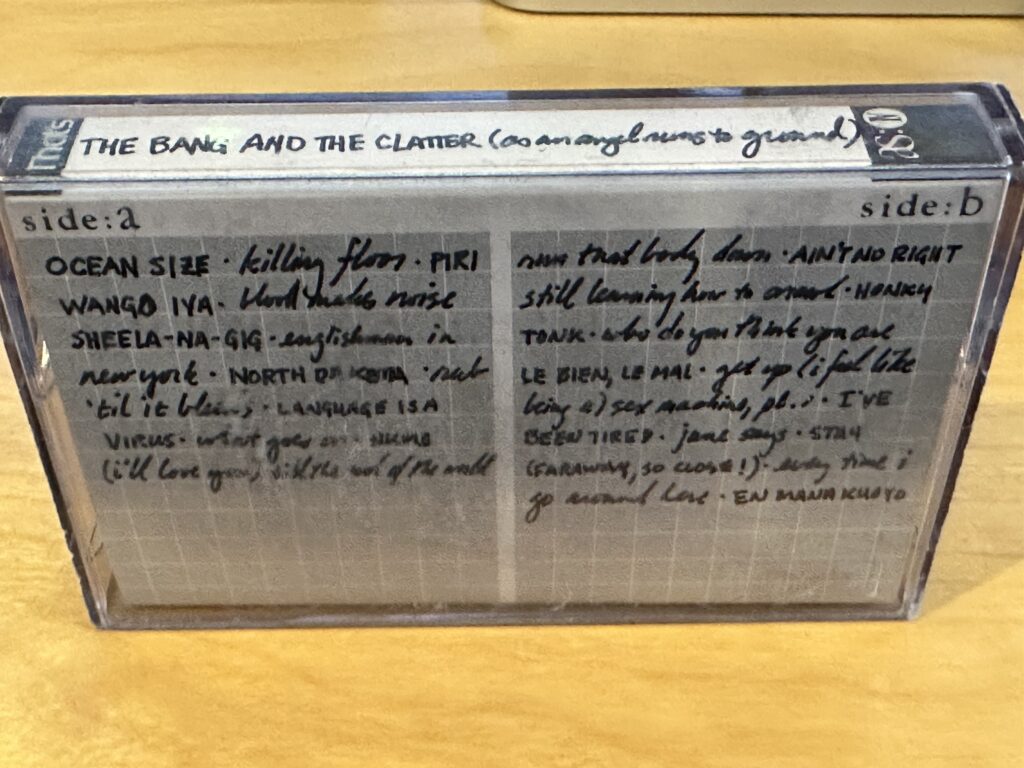 That's THE BANG AND THE CLATTER (as an angel runs to ground)
side:a
OCEAN SIZE · killing floor · PIRI
WANGO IYA · blood makes noise
SHEELA-NA-GIG · englishman in
new york · NORTH DAKOTA · rub
'til it bleeds · LANGUAGE IS A
VIRUS · what goes on ·
(i'll love you) till the end of the world
side:b
run that body down · AIN'T NO RIGHT
still learning how to crawl · HONKY
TONK · who do you think you are
LE BIEN, LE MAL · get up (i feel like
being a) sex machine, pt. · I'VE
BEEN TIRED · jane says · STAY
(FARAWAY, SO CLOSE!) · every time i
go around here · EN MANA KUOYO